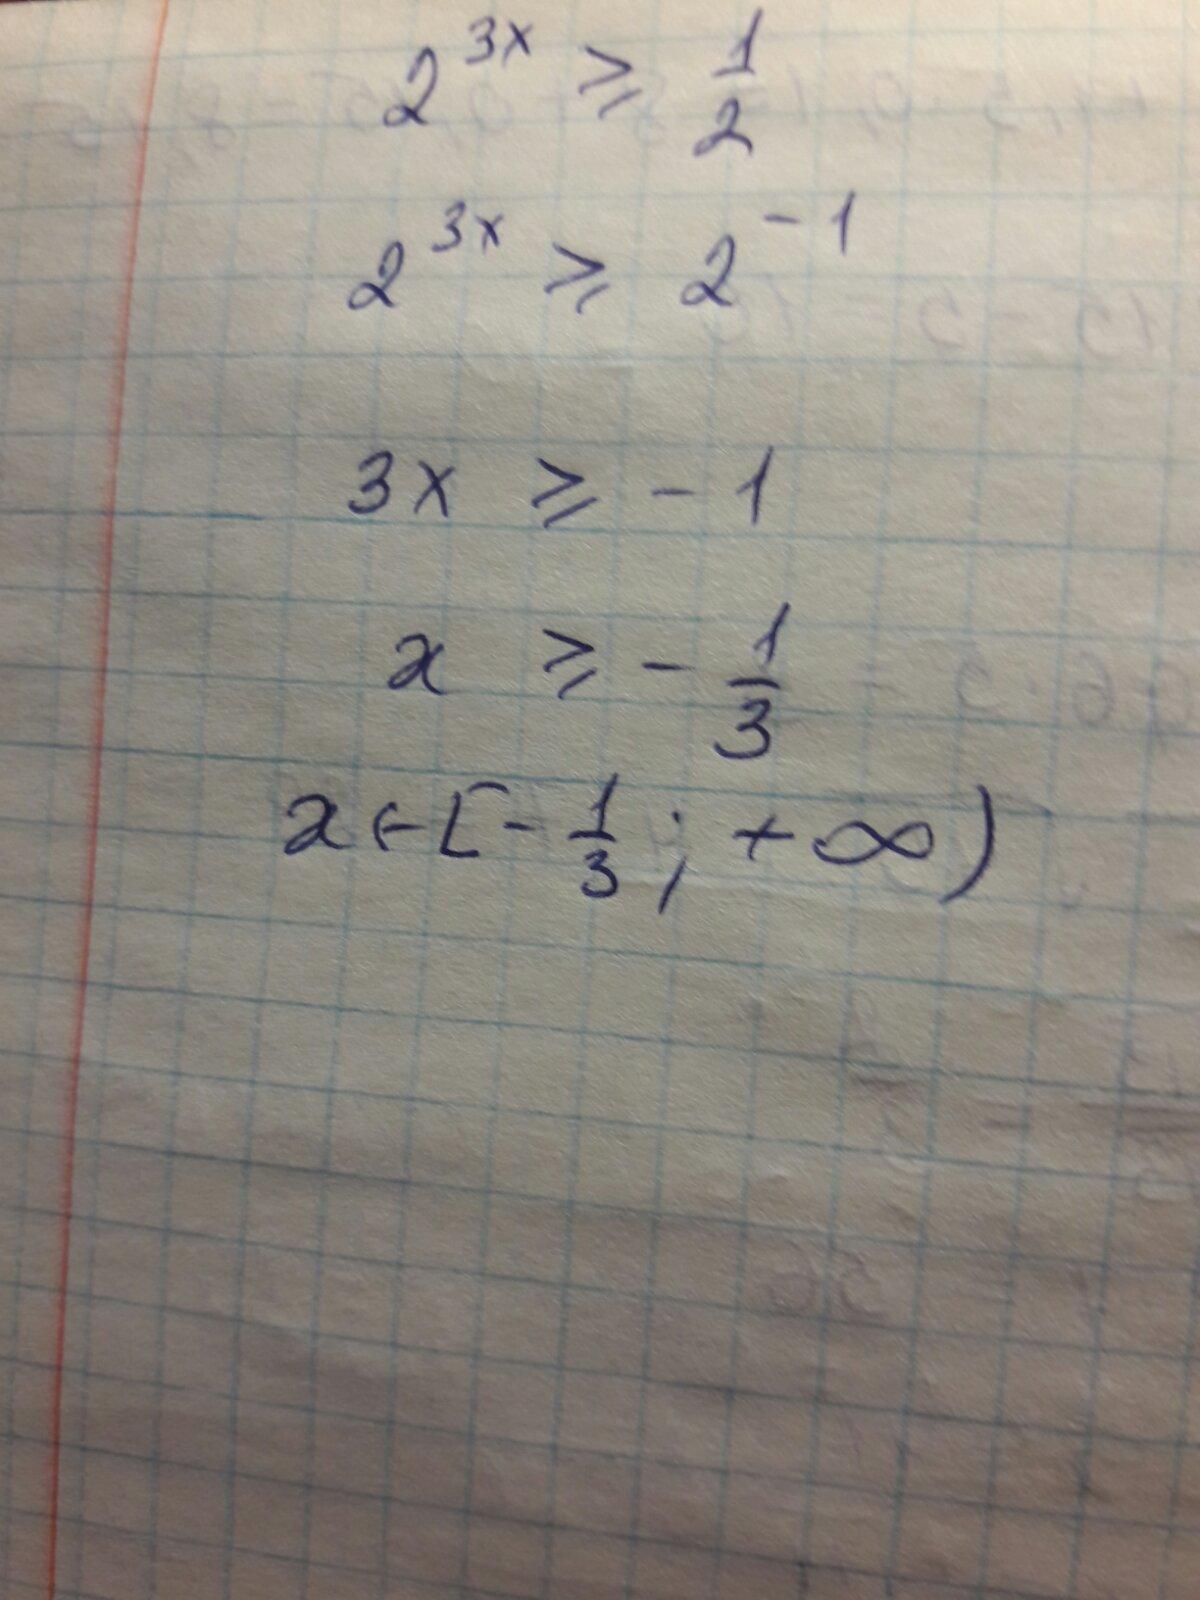 2^{3x} ≥ \frac{1}{2}
2^{3x} ≥ 2^{-1}
3x ≥ -1
x ≥ -\frac{1}{3}
x ∈ [-\frac{1}{3}; +∞)